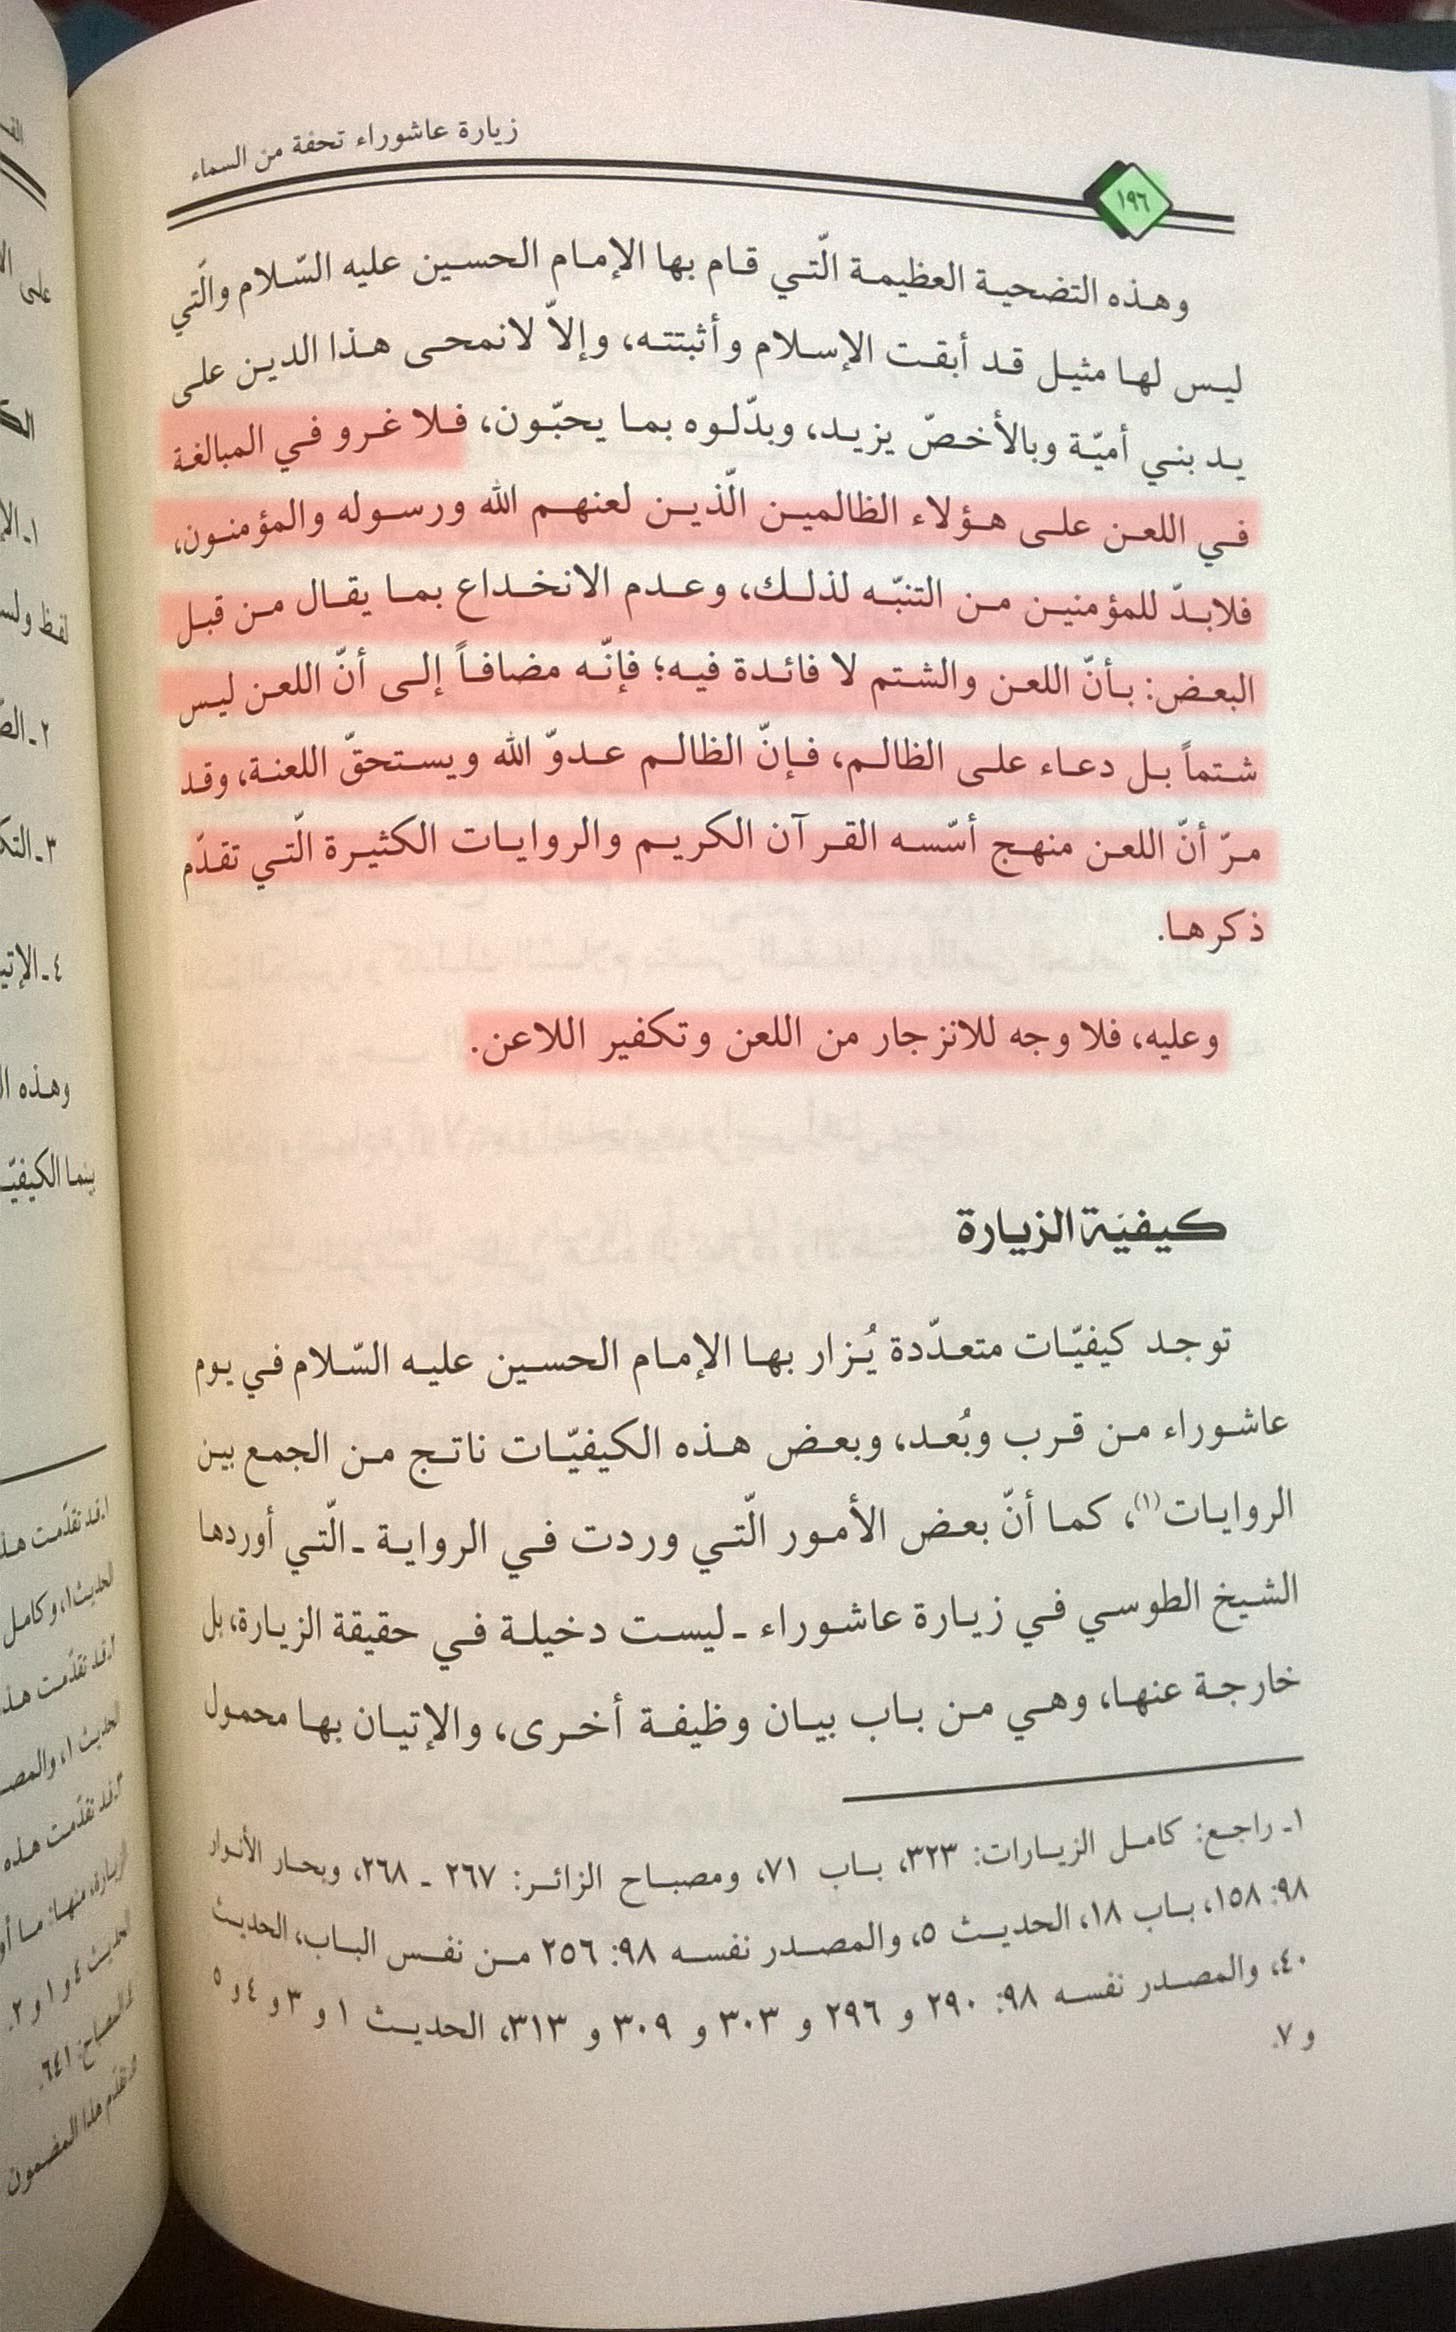 زيارة عاشوراء تحفة من السماء
١٩٦
وهذه التضحية العظيمة الّتي قام بها الإمام الحسين عليه السّلام والّتي
ليس لها مثيل قد أبقت الإسلام وأثبتته، وإلاّ لانمحى هذا الدين على
يد بني أميّة وبالأخصّ يزيد، وبدّلوه بما يحبّون، فلا غرو في المبالغة
في اللعن على هؤلاء الظالمين الّذين لعنهم الله ورسوله والمؤمنون،
فلابدّ للمؤمنين من التنبّه لذلك، وعدم الانخداع بما يقال من قبل
البعض: بأنّ اللعن والشتم لا فائدة فيه؛ فإنّه مضافاً إلى أنّ اللعن ليس
شتماً بل دعاء على الظالم، فإنّ الظالم عدوّ الله ويستحقّ اللعنة، وقد
مرّ أنّ اللعن منهج أسّسه القرآن الكريم والروايات الكثيرة الّتي تقدّم
ذكرها.
وعليه، فلا وجه للانزجار من اللعن وتكفير اللاعن.
كيفيّة الزيارة
توجد كيفيّات متعدّدة يُزار بها الإمام الحسين عليه السّلام في يوم
عاشوراء من قرب وبُعد، وبعض هذه الكيفيّات ناتج من الجمع بين
الروايات(١)، كما أنّ بعض الأمور الّتي وردت في الرواية ـ الّتي أوردها
الشيخ الطوسي في زيارة عاشوراء ـ ليست دخيلة في حقيقة الزيارة، بل
خارجة عنها، وهي من باب بيان وظيفة أخرى، والإتيان بها محمول
١ـ راجع: كامل الزيارات: ٣٢٣، باب ٧١، ومصباح الزائر: ٢٦٧ ـ ٢٦٨، وبحار الأنوار
٩٨: ١٥٨، باب ١٨، الحديث ٥، والمصدر نفسه ٩٨: ٢٥٦ من نفس الباب، الحديث
٤٠، والمصدر نفسه ٩٨: ٢٩٠ و ٢٩٦ و ٣٠٣ و ٣٠٩ و ٣١٣، الحديث ١ و ٣ و ٤ و ٥
و ٧.